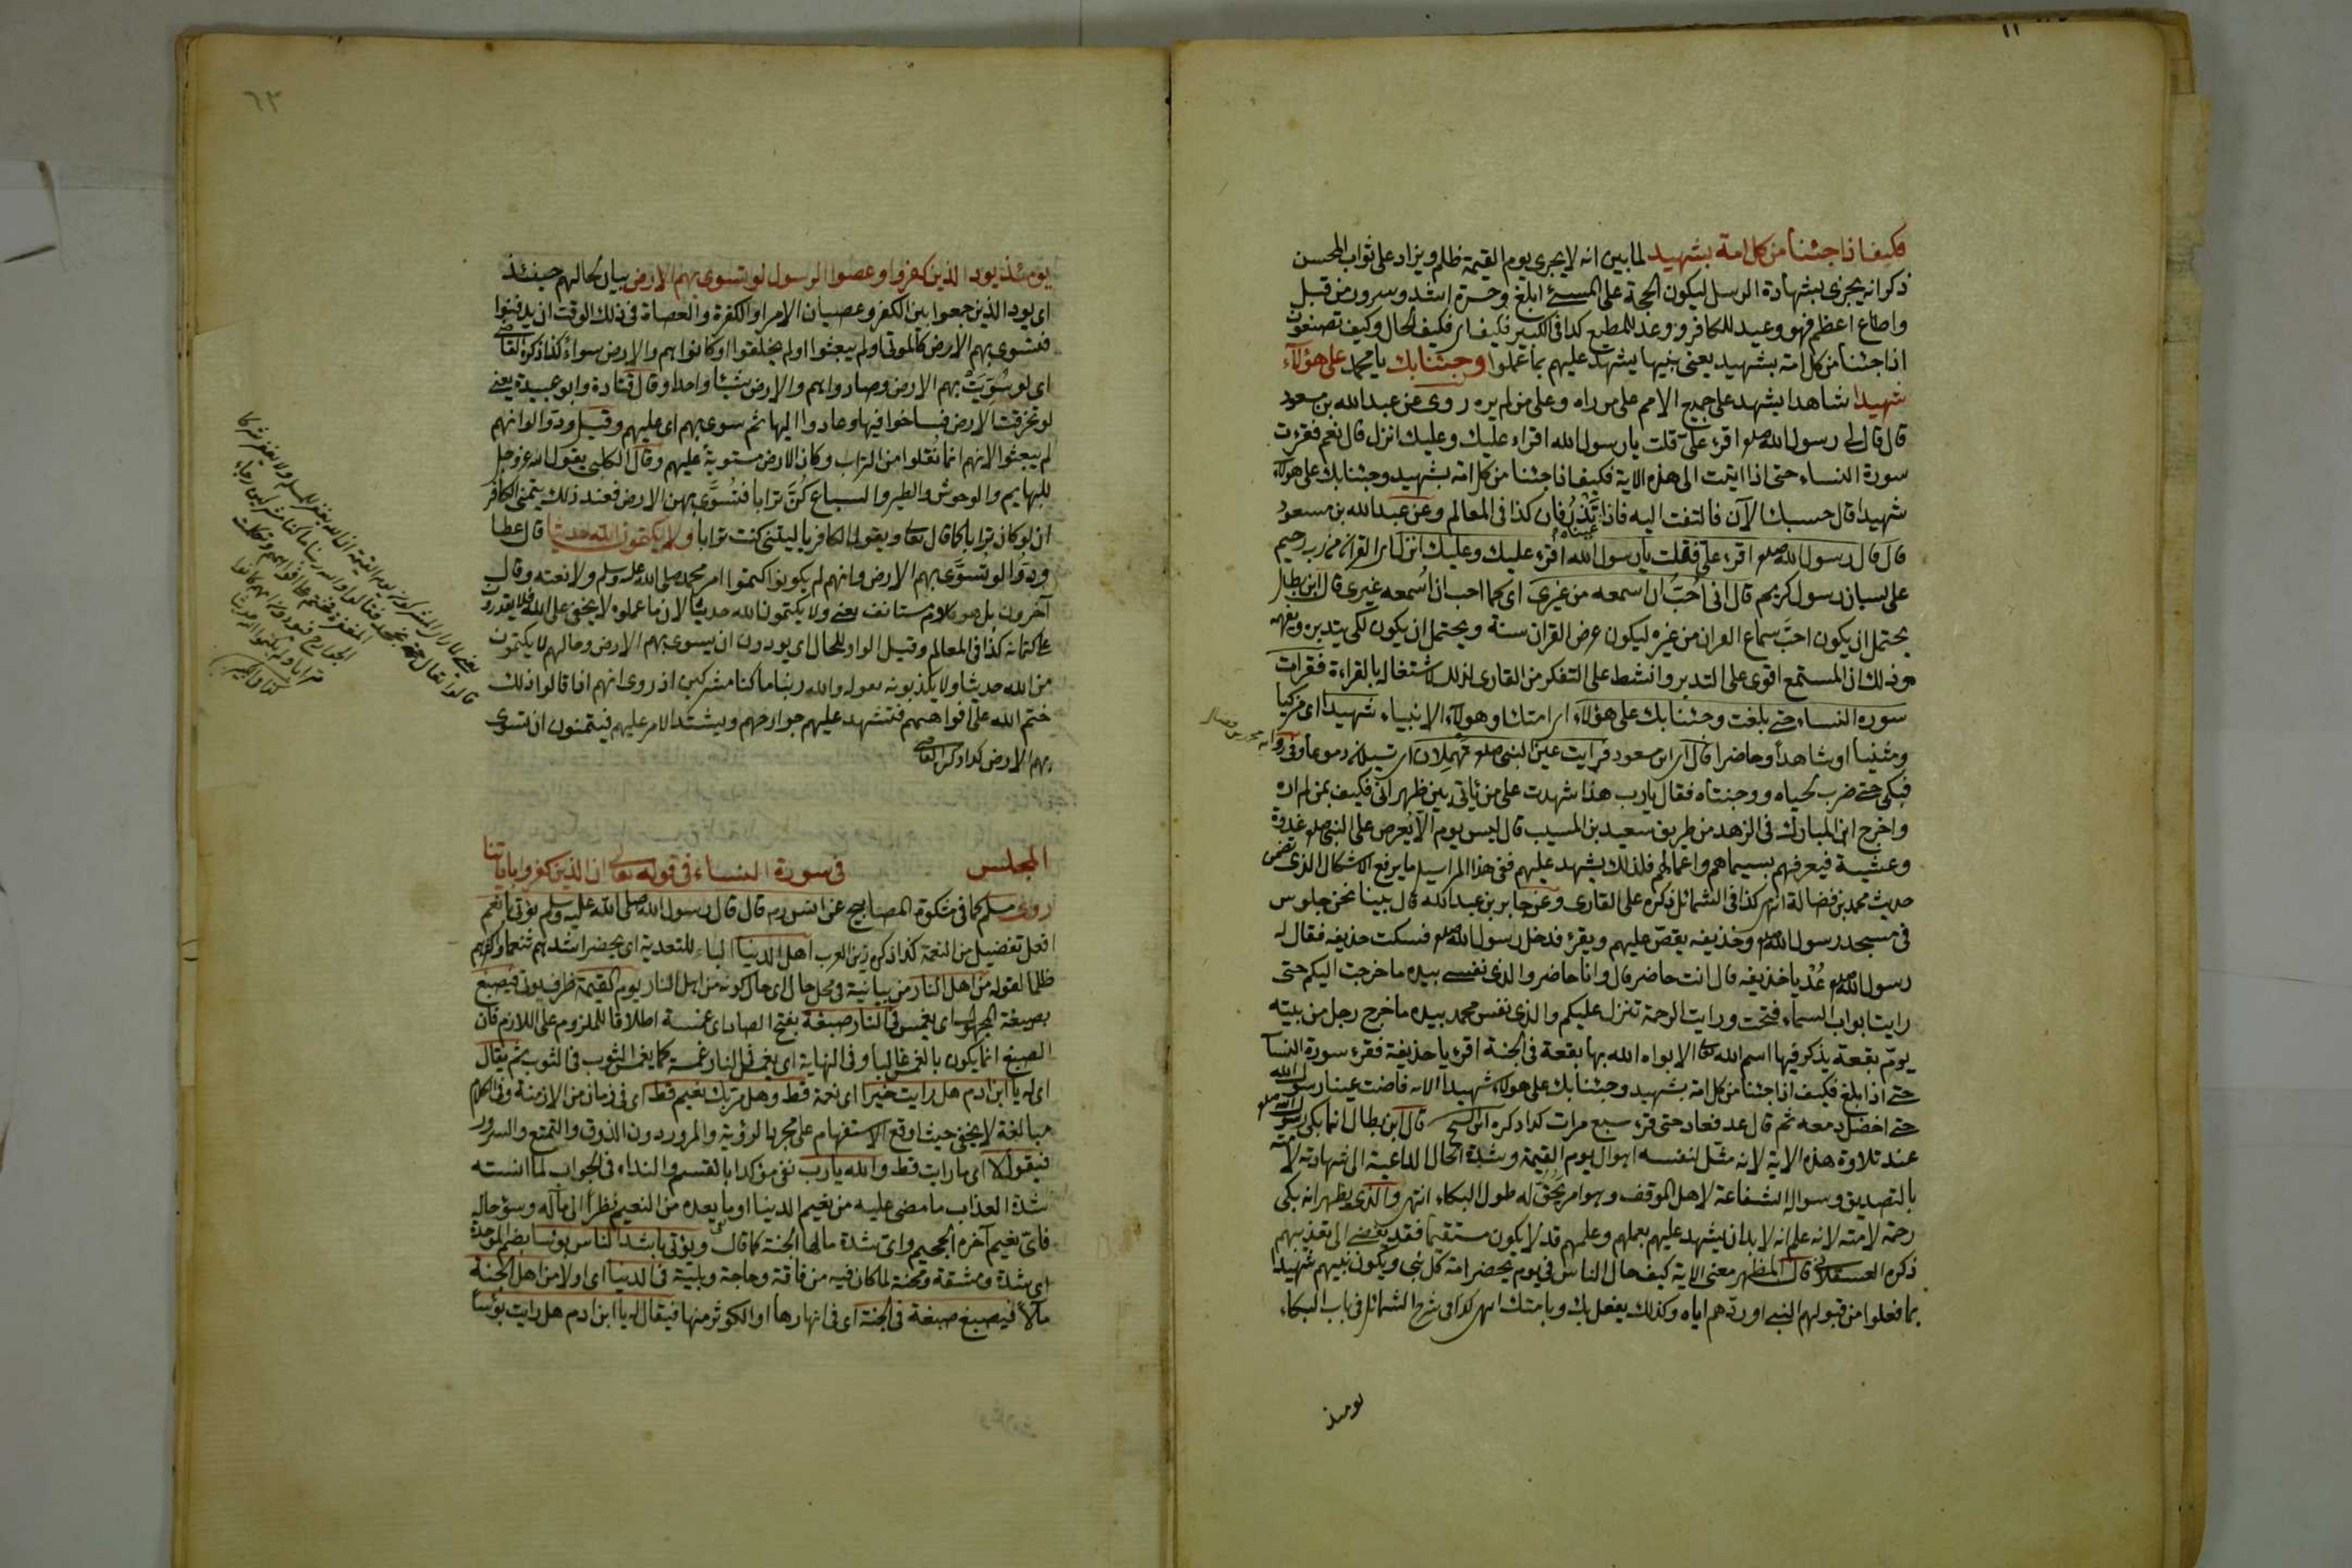 فكيف اذا جئنا من كل امة بشهيد لما بين انه لا يجرى يوم القيمة ظلم ويزاد على ثواب المحسن
ذكر انه يجزى بشهادة الرسل ليكون الحجة على المسئ ابلغ وحسرة اشد وسرور من قبل
واطاع اعظم فهو وعيد للكافر ووعد للمطيع كذا فى الكبير فكيف اى فكيف الحال وكيف تصنعون
اذا جئنا من كل امة بشهيد يعنى بنبيها يشهد عليهم بما عملوا وجئنا بك يا محمد على هؤلاء
شهيدا شاهدا يشهد على جميع الامم على من راه وعلى من لم يره روى عن عبد الله بن مسعود
قال قال لى رسول الله صلعم اقرء علىّ قلت يا رسول الله اقراء عليك وعليك انزل قال نعم فقرءت
سورة النساء حتى اذا اتيت الى هذه الاية فكيف اذا جئنا من كل امة بشهيد وجئنا بك على هؤلاء
شهيدا قال حسبك الآن فالتفت اليه فاذا عيناه تذرفان كذا فى المعالم وعن عبد الله بن مسعود
قال قال رسول الله صلعم اقرء علىّ فقلت يا رسول الله اقرء عليك وعليك انزل اى القران من رب رحيم
على لسان رسول كريم قال انى احبّ ان اسمعه من غيرى اى كما احب ان اُسمعه غيرى قال ابن بطال
يحتمل ان يكون احبّ سماع القران من غيره ليكون عرض القران سنة ويحتمل ان يكون لكى يتدبره ويفهمه
وذلك ان المستمع اقوى على التدبر وانشط على التفكر من القارى لذلك لاشتغاله بالقراءة فقرات
سورة النساء حتى بلغت وجئنا بك على هؤلاء اى امتك او هؤلاء الانبياء شهيدا اى مزكيا
ومثنيا او شاهدا وحاضرا قال اى ابن مسعود فرايت عينى النبى صلعم تهملان اى تسيلان دموعا وفى رواية
فبكى حتى ضرب لحياه ووجنتاه فقال يا رب هذا شهدت على من انا بين ظهرانى فكيف بمن لم اره
واخرج ابن المبارك فى الزهد من طريق سعيد بن المسيب قال ليس يوم الا يُعرض على النبى صلعم غدوة
وعشية فيعرفهم بسيماهم واعمالهم فلذلك يشهد عليهم ففى هذا المراسيل ما يرفع الاشكال الذى تضمن
حديث محمد بن فضالة انتهى كذا فى الشمائل ذكره على القارى وعن جابر بن عبد الله قال بينا نحن جلوس
فى مسجد رسول الله صلعم وحذيفه يقصّ عليهم ويقرء فدخل رسول الله صلعم فسكت حذيفه فقال له
رسول الله صلعم عُدْ يا حذيفه قال انت حاضر قال وانا حاضر والذى نفسى بيده ما خرجت اليكم حتى
رايت ابواب السماء فتحت ورايت الرحمة تنزل عليكم والذى نفس محمد بيده ما خرج رجل من بيته
يومّ بقعة يذكر فيها اسم الله تعالى الا بواه الله بها بقعة فى الجنة اقرء يا حذيفة فقرء سورة النسآء
حتى اذا بلغ فكيف اذا جئنا من كل امة بشهيد وجئنا بك على هؤلاء شهيدا الاية فاضت عينا رسول الله
حتى اخضل دمعه ثم قال عد فعاد حتى قرء سبع مرات كذا ذكره ابن الشيخ قال ابن بطال انما بكى رسول الله صلعم
عند تلاوة هذه الاية لانه مثّل لنفسه اهوال يوم القيمة وشدة الحال الداعية الى شهادته لامته
بالتصديق وسواله الشفاعة لاهل الموقف وهو امر يحقّ له طول البكاء انتهى والذى يظهر انه بكى
رحمة لامته لانه علم انه لا بد ان يشهد عليهم بعملهم وعلمهم قد لا يكون مستقيما فقد يفضى الى تعذيبهم
ذكره العسقلانى قال المظهر معنى الاية كيف حال الناس فى يوم يحضر امة كل نبى ويكون نبيهم شهيدا
بما فعلوا من قبولهم النبى او ردّهم اياه وكذلك يفعل بك وبامتك انتهى كذا فى شرح الشمائل فى باب البكاء
يومئذ
٦٣
يومئذ يود الذين كفروا وعصوا الرسول لو تسوى بهم الارض بيان لحالهم حينئذ
اى يود الذين جمعوا بين الكفر وعصيان الامر او الكفرة والعصاة فى ذلك الوقت ان يدفنوا
فتسوى بهم الارض كالموتى او لم يبعثوا او لم يخلقوا او كانوا هم والارض سواءً كذا ذكره القاضى
اى لو سُوّيَتْ بهم الارض وصاروا هم والارض شيئا واحدا وقال قتادة وابو عبيدة يعنى
لو تخرقت الارض فساخوا فيها وعادوا اليها ثم سوى بهم اى عليهم وقيل ودّوا لو انهم
لم يبعثوا لانهم انما نقلوا من التراب وكان الارض مستوية عليهم وقال الكلبى يقول الله عز وجل
للبهايم والوحوش والطير والسباع كُنّ ترابا فتُسَوّى بهن الارض فعند ذلك يتمنى الكافر
ان لو كان ترابا كما قال تعالى ويقول الكافر يا ليتنى كنت ترابا ولا يكتمون الله حديثا قال عطا
ودّوا لو تسوّى بهم الارض وانهم لم يكونوا كتموا امر محمد صلى الله عليه وسلم ولا نعته وقال
آخرون بل هو كلام مستانف يعنى ولا يكتمون الله حديثا لان ما عملوه لا يخفى على الله فلا يقدرون
على كتمانه كذا فى المعالم وقيل الواو للحال اى يودون ان يسوى بهم الارض وحالهم لا يكتمون
من الله حديثا ولا يكذبونه بقولهم والله ربنا ما كنا مشركين اذ روى انهم اذا قالوا ذلك
ختم الله على افواههم فتشهد عليهم جوارحهم ويشتد الامر عليهم فيتمنون ان تسوى
بهم الارض كذا ذكره القاضى
المجلس فى سورة النساء فى قوله تعالى ان الذين كفروا باياتنا
روى مسلم كما فى مشكوة المصابيح عن انس رضه قال قال رسول الله صلى الله عليه وسلم يؤتى بانعم
افعل تفضيل من النعمة كذا ذكره زين العرب اهل الدنيا الباء للتعدية اى يحضر اشدهم تنعما واكثرهم
ظلما لقوله من اهل النار من بيانية فى محل حال اى حال كونه من اهل النار يوم القيمة ظرف يؤتى فيصبغ
بصيغة المجهول اى يغمس فى النار صبغة بفتح الصاد اى غمسة اطلاقا للملزوم على اللازم فان
الصبغ انما يكون بالغمس غالبا وفى النهاية اى يغمس فى النار غمسة كما يغمس الثوب فى الثوب ثم يقال
اى له يا ابن ادم هل رايت خيرا اى نعمة قط وهل مر بك نعيم قط اى فى زمان من الازمنة وفى الكلام
مبالغة لا يخفى حيث اوقع الاستفهام على مجرد الرؤية والمرور دون الذوق والتمتع والسرور
فيقول لا اى ما رايت قط والله يا رب نفى مؤكد بالقسم والنداء فى الجواب لما انسته
شدة العذاب ما مضى عليه من نعيم الدنيا او ما بعده من النعيم نظرا الى مآله وسوء حاله
فاىّ نعيم آخره الجحيم واىّ شدة مالها الجنة كما قال ويؤتى باشد الناس بؤسا بضم الموحدة
اى شدة ومشقة ومحنة لما كان فيه من فاقة وحاجة وبلية فى الدنيا اى اولا من اهل الجنة
مآلا فيصبغ صبغة فى الجنة اى فى انهارها او الكوثر منها فيقال له يا ابن ادم هل رايت بؤسا